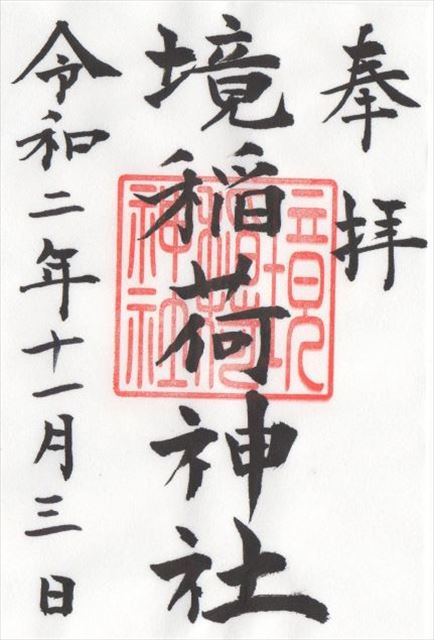 奉拝
境稲荷神社
境稲荷神社
令和二年十一月三日